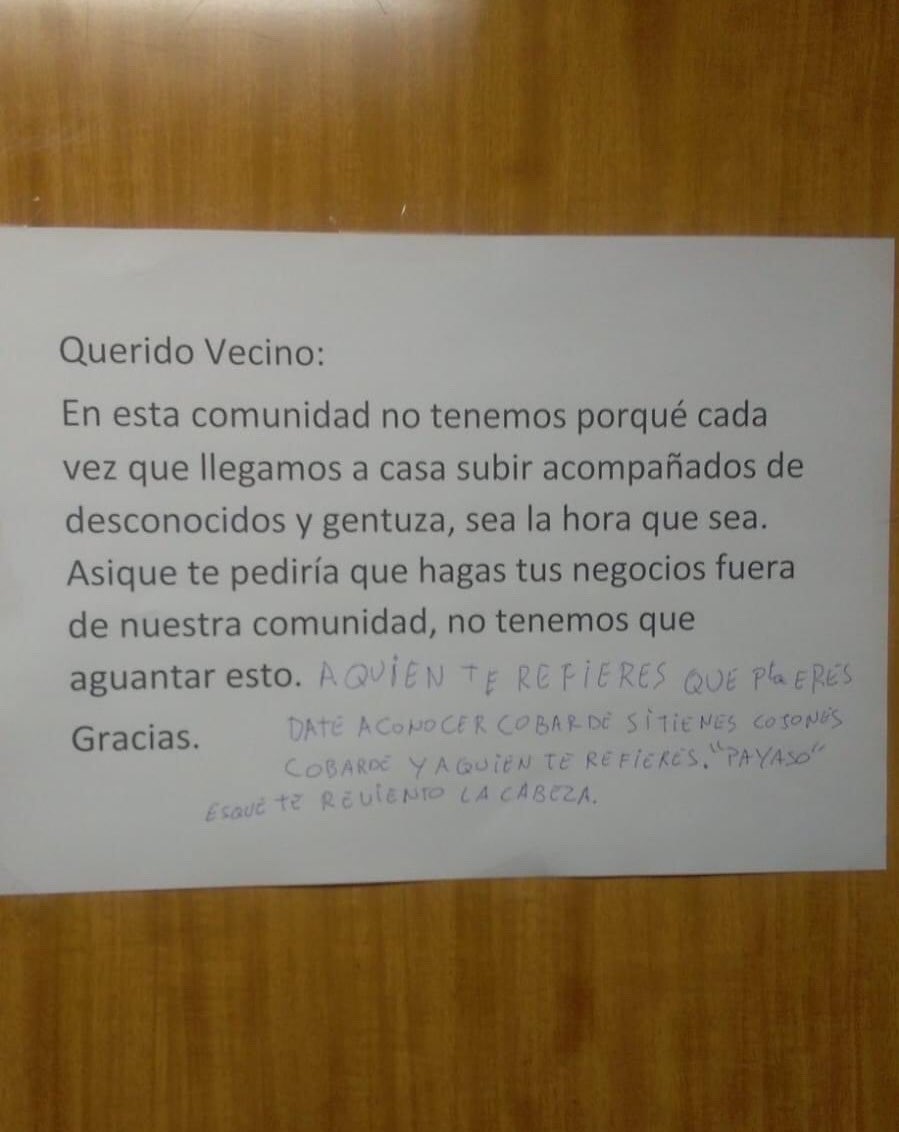 Querido Vecino:
En esta comunidad no tenemos porqué cada
vez que llegamos a casa subir acompañados de
desconocidos y gentuza, sea la hora que sea.
Asique te pediría que hagas tus negocios fuera
de nuestra comunidad, no tenemos que
aguantar esto. A QUIEN TE REFIERES QUE Pta ERES
Gracias. DATE ACONOCER COBARDE SI TIENES COJONES
COBARDE Y AQUIEN TE REFIERES. "PAYASO"
ESQUE TE REVIENTO LA CABEZA.